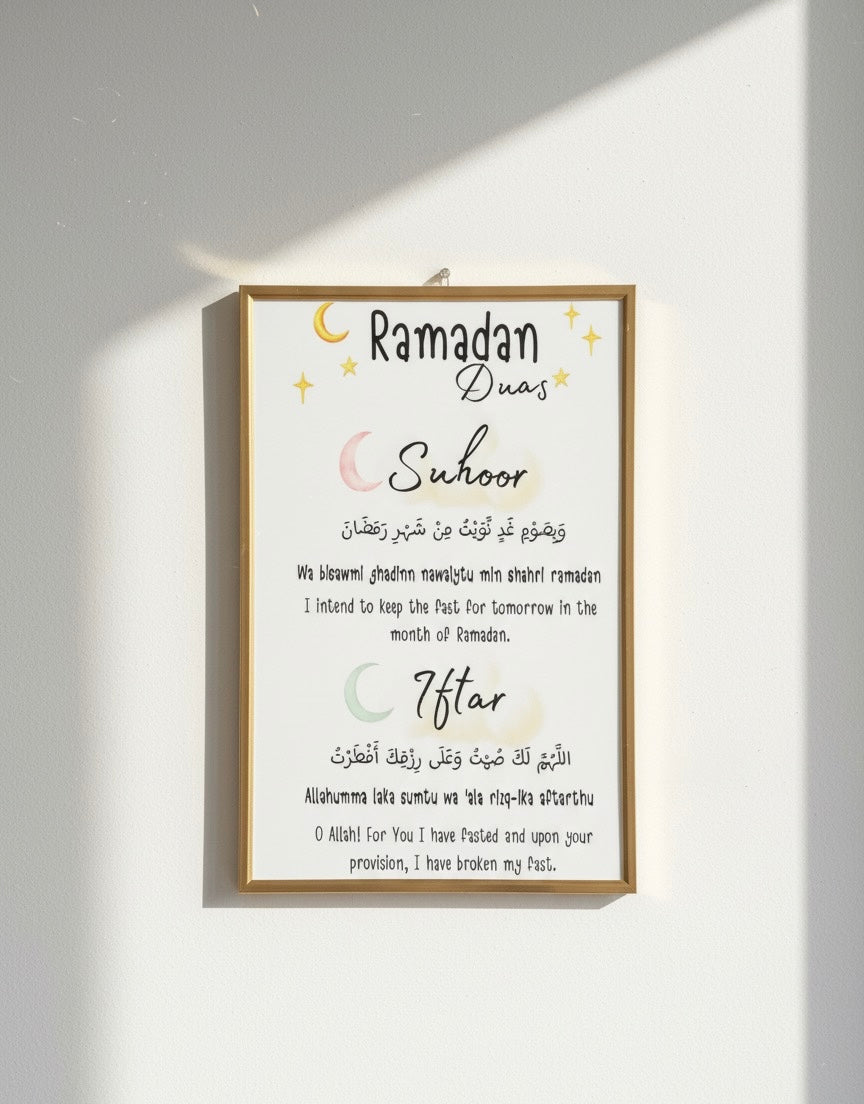 Ramadan
Duas
Suhoor
وَبِصَوْمِ غَدٍ نَّوَيْتُ مِنْ شَهْرِ رَمَضَانَ
Wa bisawmi ghadinn nawaiytu min shahri ramadan
I intend to keep the fast for tomorrow in the
month of Ramadan.
Iftar
اللَّهُمَّ لَكَ صُمْتُ وَعَلَى رِزْقِكَ أَفْطَرْتُ
Allahumma laka sumtu wa 'ala rizq-ika aftarthu
O Allah! For You I have fasted and upon your
provision, I have broken my fast.